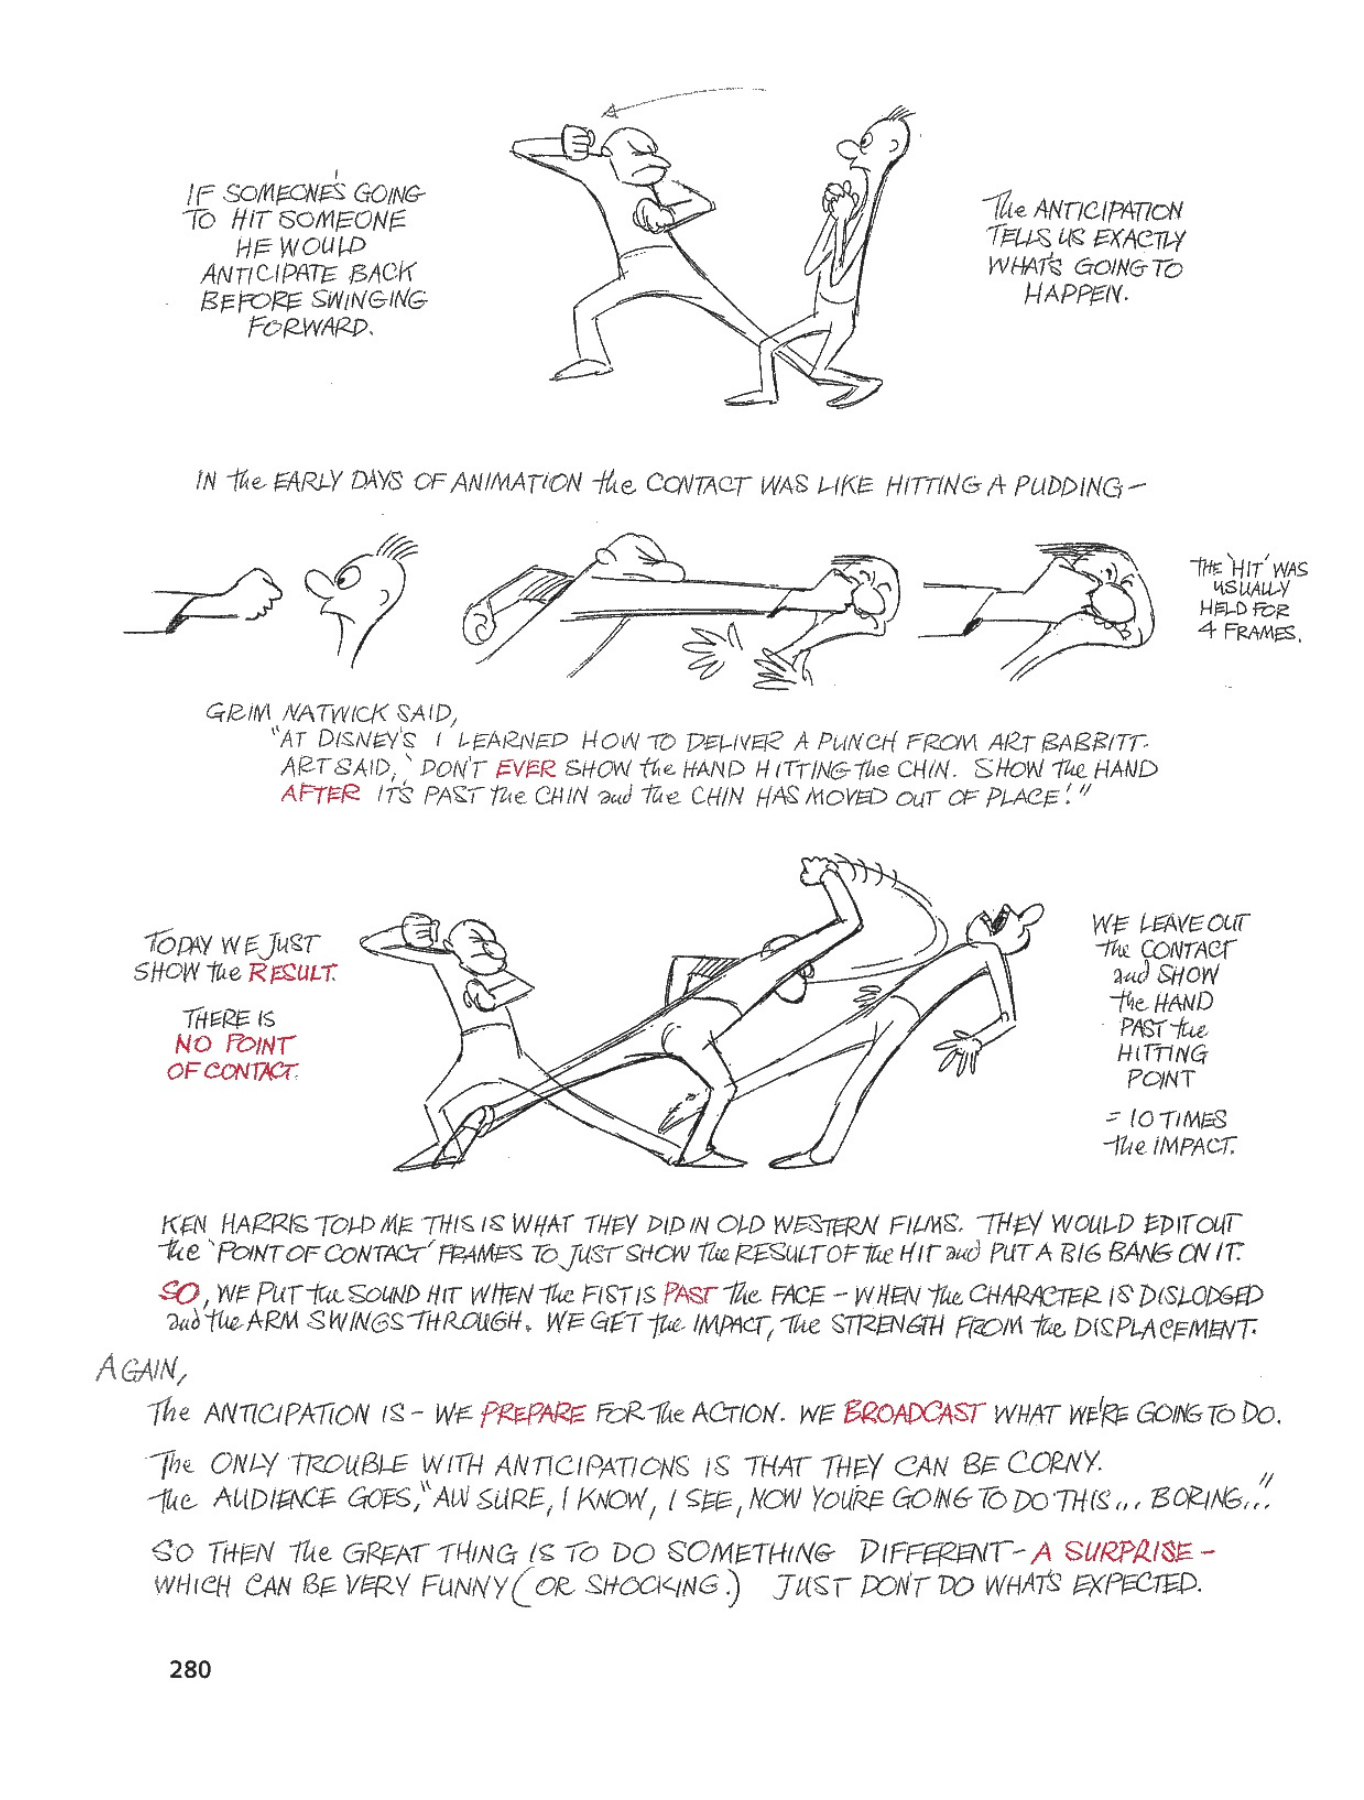 IF SOMEONE'S GOING
TO HIT SOMEONE
HE WOULD
ANTICIPATE BACK
BEFORE SWINGING
FORWARD.
The ANTICIPATION
TELLS US EXACTLY
WHAT'S GOING TO
HAPPEN.
IN the EARLY DAYS OF ANIMATION the CONTACT WAS LIKE HITTING A PUDDING –
THE 'HIT' WAS
USUALLY
HELD FOR
4 FRAMES.
GRIM NATWICK SAID,
"AT DISNEY'S I LEARNED HOW TO DELIVER A PUNCH FROM ART BABBITT.
ART SAID, 'DON'T EVER SHOW the HAND HITTING the CHIN. SHOW The HAND
AFTER IT'S PAST the CHIN and the CHIN HAS MOVED OUT OF PLACE!'"
TODAY WE JUST
SHOW the RESULT.
THERE IS
NO POINT
OF CONTACT.
WE LEAVE OUT
the CONTACT
and SHOW
the HAND
PAST the
HITTING
POINT
= 10 TIMES
the IMPACT.
KEN HARRIS TOLD ME THIS IS WHAT THEY DID IN OLD WESTERN FILMS. THEY WOULD EDIT OUT
the 'POINT OF CONTACT' FRAMES TO JUST SHOW The RESULT OF The HIT and PUT A BIG BANG ON IT.
SO, WE PUT the SOUND HIT WHEN The FIST IS PAST The FACE – WHEN the CHARACTER IS DISLODGED
and the ARM SWINGS THROUGH. WE GET the IMPACT, The STRENGTH FROM the DISPLACEMENT.
AGAIN,
The ANTICIPATION IS – WE PREPARE FOR The ACTION. WE BROADCAST WHAT WE'RE GOING TO DO.
The ONLY TROUBLE WITH ANTICIPATIONS IS THAT THEY CAN BE CORNY.
the AUDIENCE GOES, "AW SURE, I KNOW, I SEE, NOW YOU'RE GOING TO DO THIS... BORING..."
SO THEN The GREAT THING IS TO DO SOMETHING DIFFERENT – A SURPRISE –
WHICH CAN BE VERY FUNNY (OR SHOCKING.) JUST DON'T DO WHAT'S EXPECTED.
280